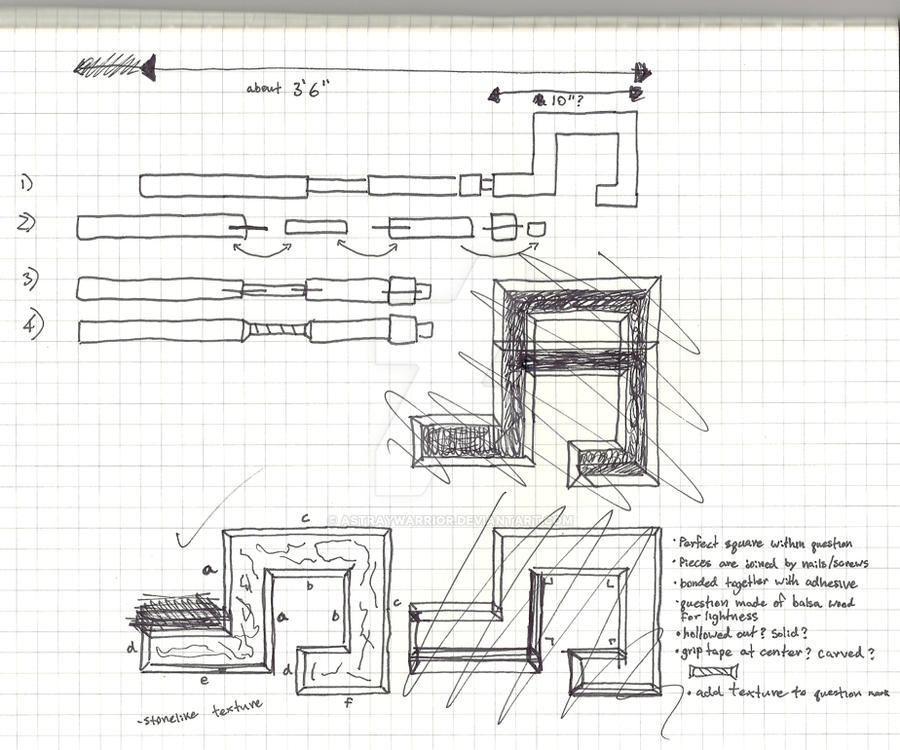 about 3'6"
10"?
1)
2)
3)
4)
© ASTRAYWARRIOR.DEVIANTART.COM
c
a
b
a
b
c
d
d
e
f
-stonelike texture
• Perfect square within question
• Pieces are joined by nails/screws
• bonded together with adhesive
• question made of balsa wood
for lightness
• hollowed out? Solid?
• grip tape at center? Carved?
• add texture to question mark